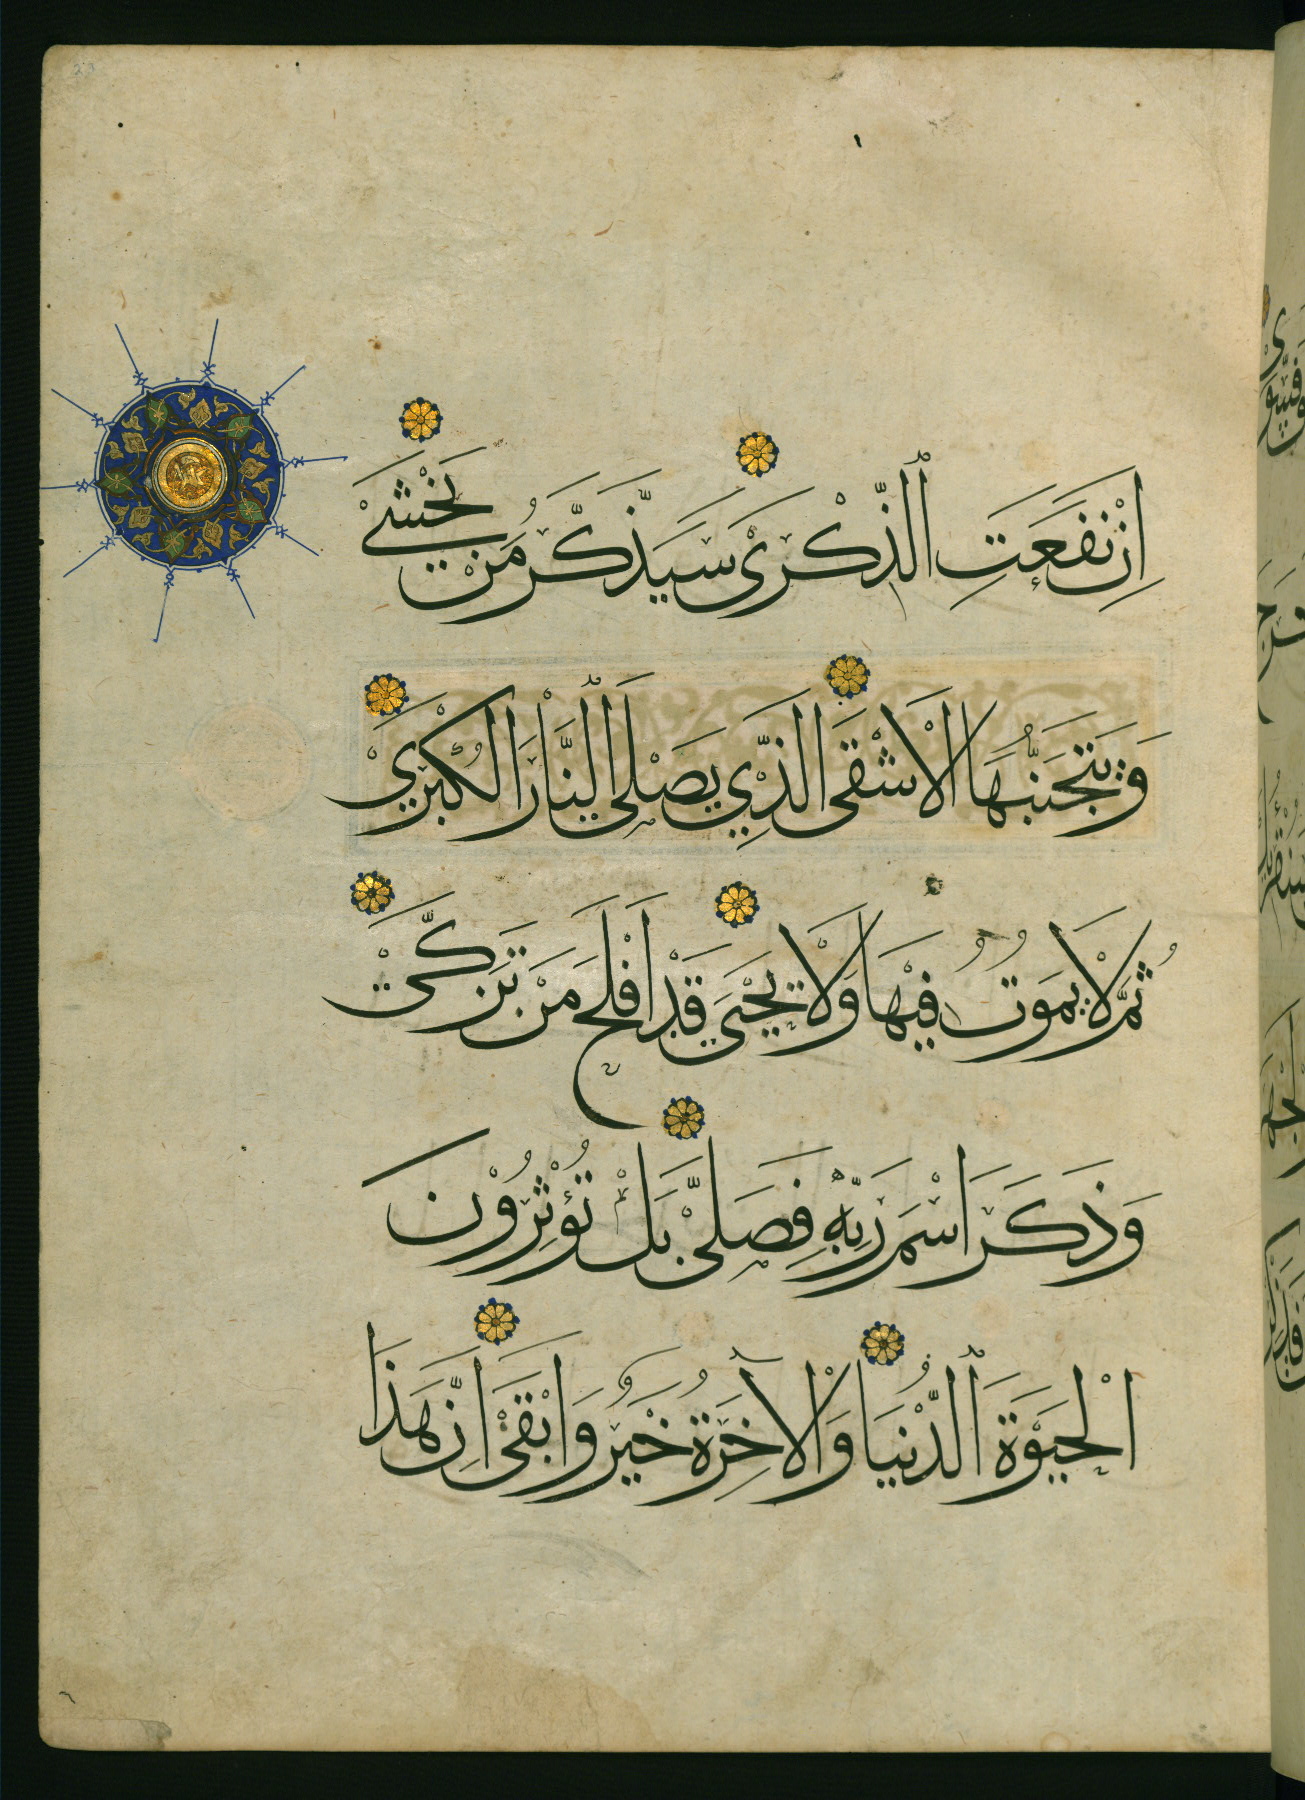 اِنْ نَفَعَتِ الذِّكْرَى سَيَذَّكَّرُ مَنْ يَخْشَى
وَيَتَجَنَّبُهَا الْاَشْقَى الَّذِي يَصْلَى النَّارَ الْكُبْرَى
ثُمَّ لَا يَمُوتُ فِيْهَا وَلَا يَحْيَى قَدْ اَفْلَحَ مَنْ تَزَكَّى
وَذَكَرَ اسْمَ رَبِّهٖ فَصَلَّى بَلْ تُؤْثِرُوْنَ
الْحَيَوةَ الدُّنْيَا وَالْآخِرَةُ خَيْرٌ وَاَبْقَى اِنَّ هَذَا